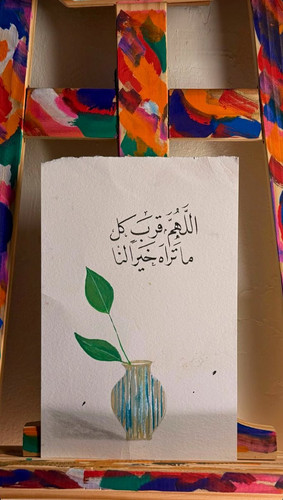 اللَّهُمَّ قرب كل
ما تراه خيرًا لنا